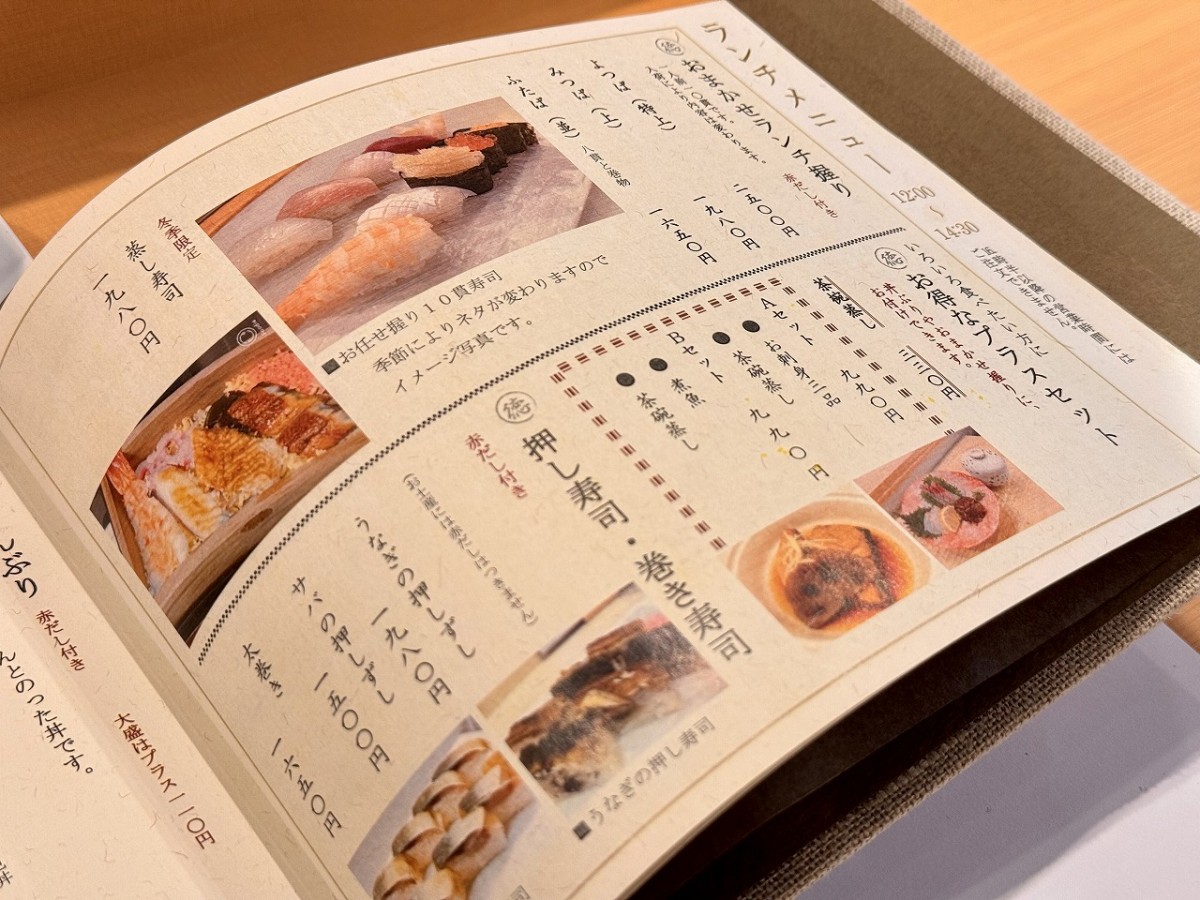 ランチメニュー 12:00～14:30
ご注文できません。
徳 おまかせランチ握り 赤だし付き
一人前一〇貫です。
入荷により内容は変わります。
よつば（特上） 二五〇〇円
みつば（上） 一九八〇円
ふたば（並） 八貫と巻物 一六五〇円
■お任せ握り１０貫寿司
季節によりネタが変わりますので
イメージ写真です。
冬季限定
蒸し寿司
一九八〇円
徳 いろいろ食べたい方に
お得なプラスセット
丼ぶりやおまかせ握りに、
お付けできます。
茶碗蒸し 三三〇円
Aセット 九九〇円
●お刺身三品
●茶碗蒸し
Bセット 九九〇円
●煮魚
●茶碗蒸し
徳 押し寿司・巻き寿司
赤だし付き
（お土産には赤だしはつきません）
うなぎの押しずし
一九八〇円
サバの押しずし
一五〇〇円
太巻き 一六五〇円
■うなぎの押し寿司
寿司
しぶり 赤だし付き
んとのった丼です。
大盛はプラス一一〇円